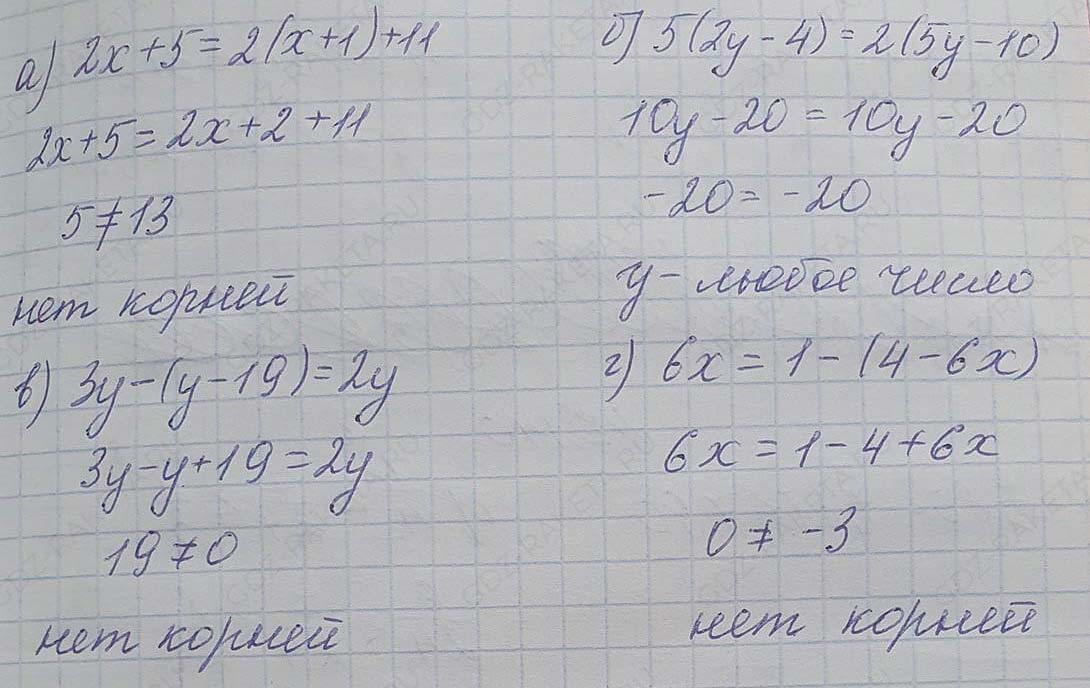 а) 2x+5=2(x+1)+11
2x+5=2x+2+11
5≠13
нет корней
б) 5(2y-4)=2(5y-10)
10y-20=10y-20
-20=-20
y- любое число
в) 3y-(y-19)=2y
3y-y+19=2y
19≠0
нет корней
г) 6x=1-(4-6x)
6x=1-4+6x
0≠-3
нет корней